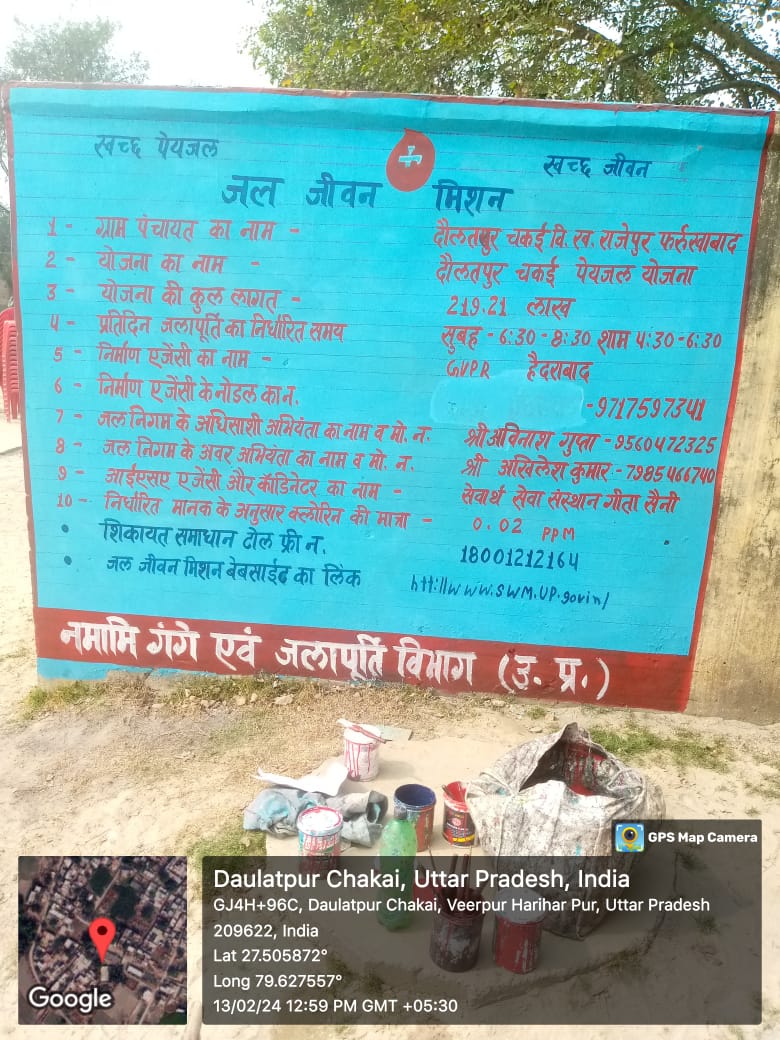 स्वच्छ पेयजल स्वच्छ जीवन
जल जीवन मिशन
1 - ग्राम पंचायत का नाम - दौलतपुर चकई वि. ख. राजेपुर फर्रुखाबाद
2 - योजना का नाम - दौलतपुर चकई पेयजल योजना
3 - योजना की कुल लागत - 219.21 लाख
4 - प्रतिदिन जलापूर्ति का निर्धारित समय सुबह - 6:30 - 8:30 शाम 4:30 - 6:30
5 - निर्माण एजेंसी का नाम - GVPR हैदराबाद
6 - निर्माण एजेंसी के नोडल का न. - 9717597341
7 - जल निगम के अधिसाशी अभियंता का नाम व मो. न. श्री अविनाश गुप्ता - 9560472325
8 - जल निगम के अवर अभियंता का नाम व मो. न. श्री अखिलेश कुमार - 7985466740
9 - आईएसए एजेंसी और कॉडिनेटर का नाम - सेवार्थ सेवा संस्थान गीता सैनी
10 - निर्धारित मानक के अनुसार क्लोरिन की मात्रा - 0.02 PPM
• शिकायत समाधान टोल फ्री न. 18001212164
• जल जीवन मिशन बेबसाईट का लिंक htt://www.swm.up.gov.in/
नमामि गंगे एवं जलापूर्ति विभाग (उ. प्र.)
GPS Map Camera
Daulatpur Chakai, Uttar Pradesh, India
GJ4H+96C, Daulatpur Chakai, Veerpur Harihar Pur, Uttar Pradesh
209622, India
Lat 27.505872°
Long 79.627557°
13/02/24 12:59 PM GMT +05:30
Google